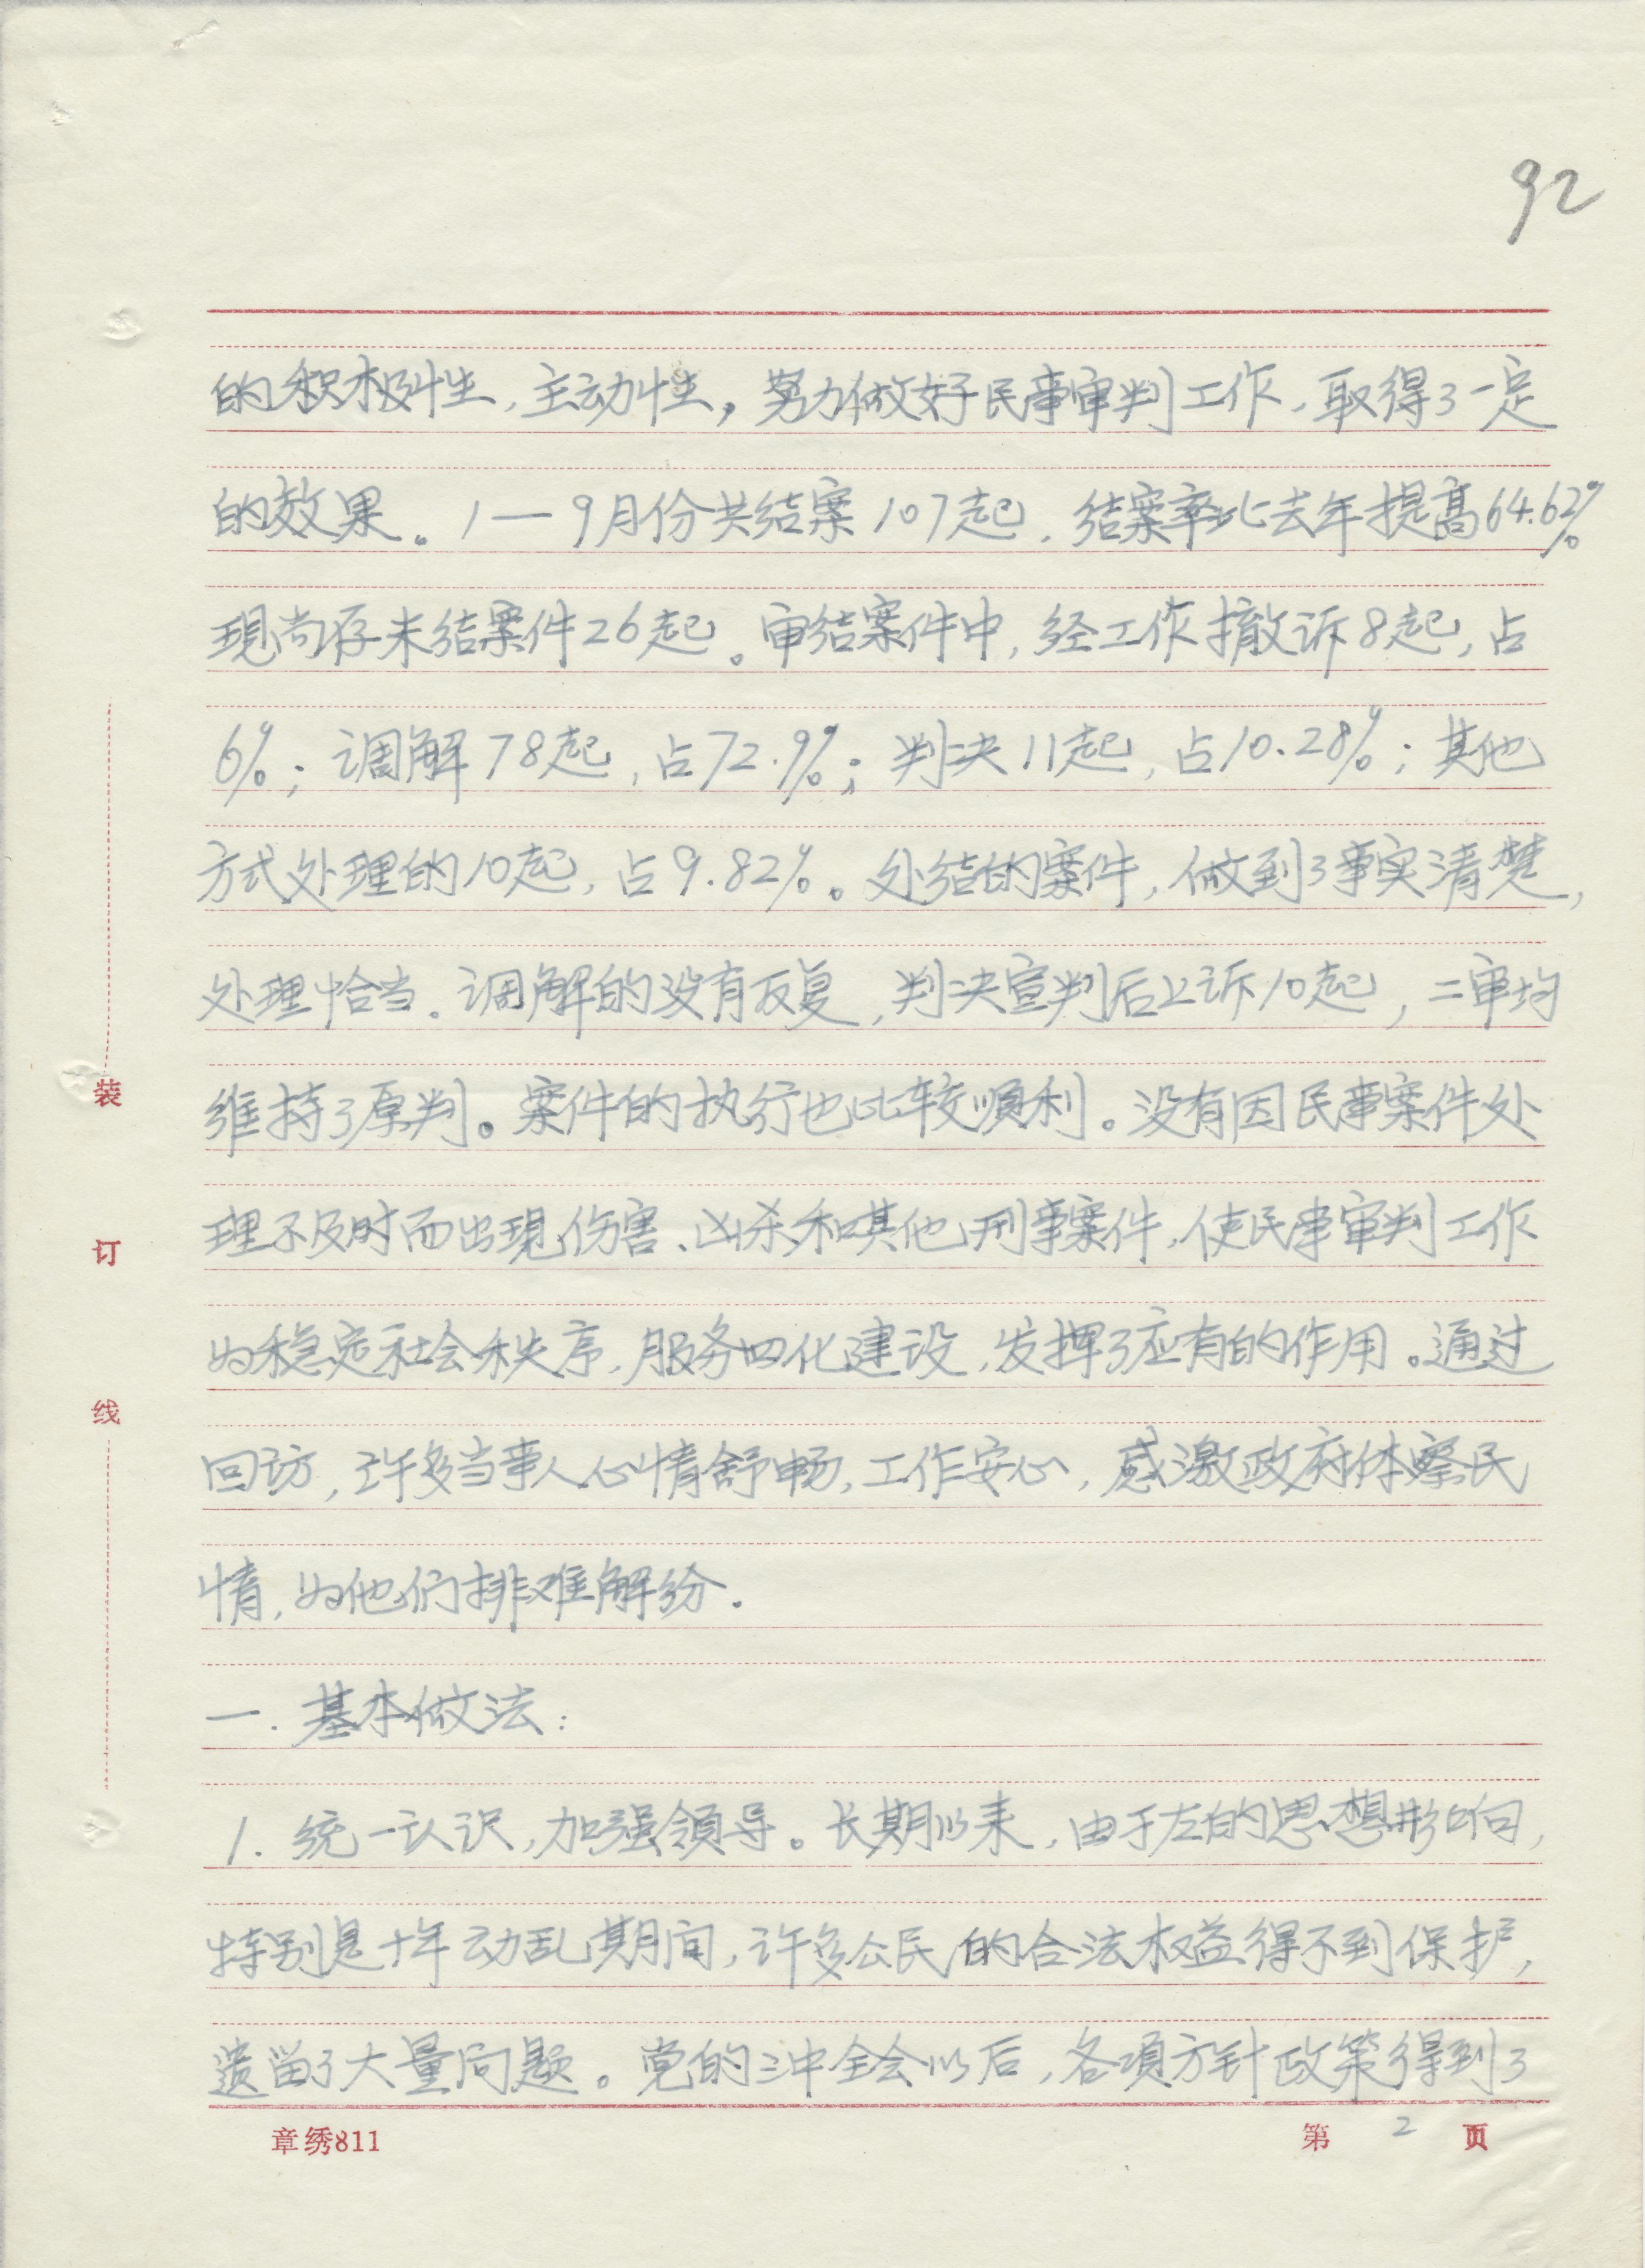 92
的积极性，主动性，努力做好民事审判工作，取得了一定
的效果。1—9月份共结案107起，结案率比去年提高64.62%
现尚存未结案件26起。审结案件中，经工作撤诉8起，占
6%；调解78起，占72.9%；判决11起，占10.28%；其他
方式处理的10起，占9.82%。处结的案件，做到了事实清楚，
处理恰当。调解的没有反复，判决宣判后上诉10起，二审均
维持了原判。案件的执行也比较顺利。没有因民事案件处
理不及时而出现伤害、凶杀和其他刑事案件，使民事审判工作
为稳定社会秩序，服务四化建设，发挥了应有的作用。通过
回访，许多当事人心情舒畅，工作安心，感激政府体察民
情，为他们排难解纷．
一．基本做法：
1．统一认识，加强领导。长期以来，由于左的思想影响，
特别是十年动乱期间，许多公民的合法权益得不到保护，
遗留了大量问题。党的三中全会以后，各项方针政策得到了
装
订
线
章绣811
第 2 页